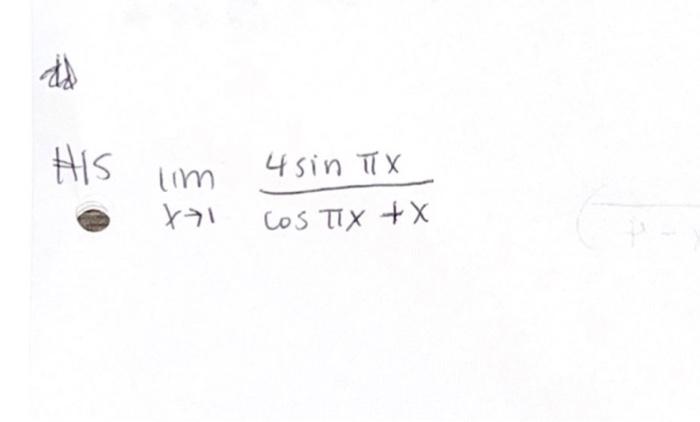 #15 lim x→1 4 sin πx / cos πx + x